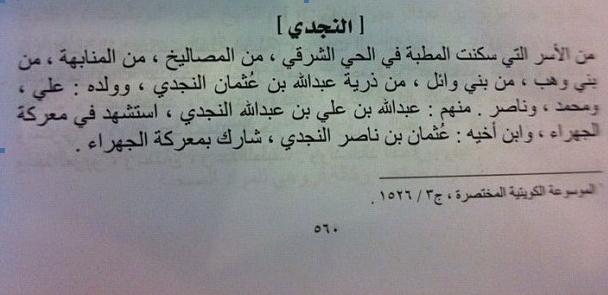 [ النجدي ]
من الأسر التي سكنت المطبة في الحي الشرقي ، من المصاليخ ، من المنابهة ، من
بني وهب ، من بني وائل ، من ذرية عبدالله بن عُثمان النجدي ، وولده : علي ،
ومحمد ، وناصر . منهم : عبدالله بن علي بن عبدالله النجدي ، استشهد في معركة
الجهراء ، وابن أخيه : عُثمان بن ناصر النجدي ، شارك بمعركة الجهراء .
الموسوعة الكويتية المختصرة ، ج٣ / ١٥٢٦ .
٥٦٠